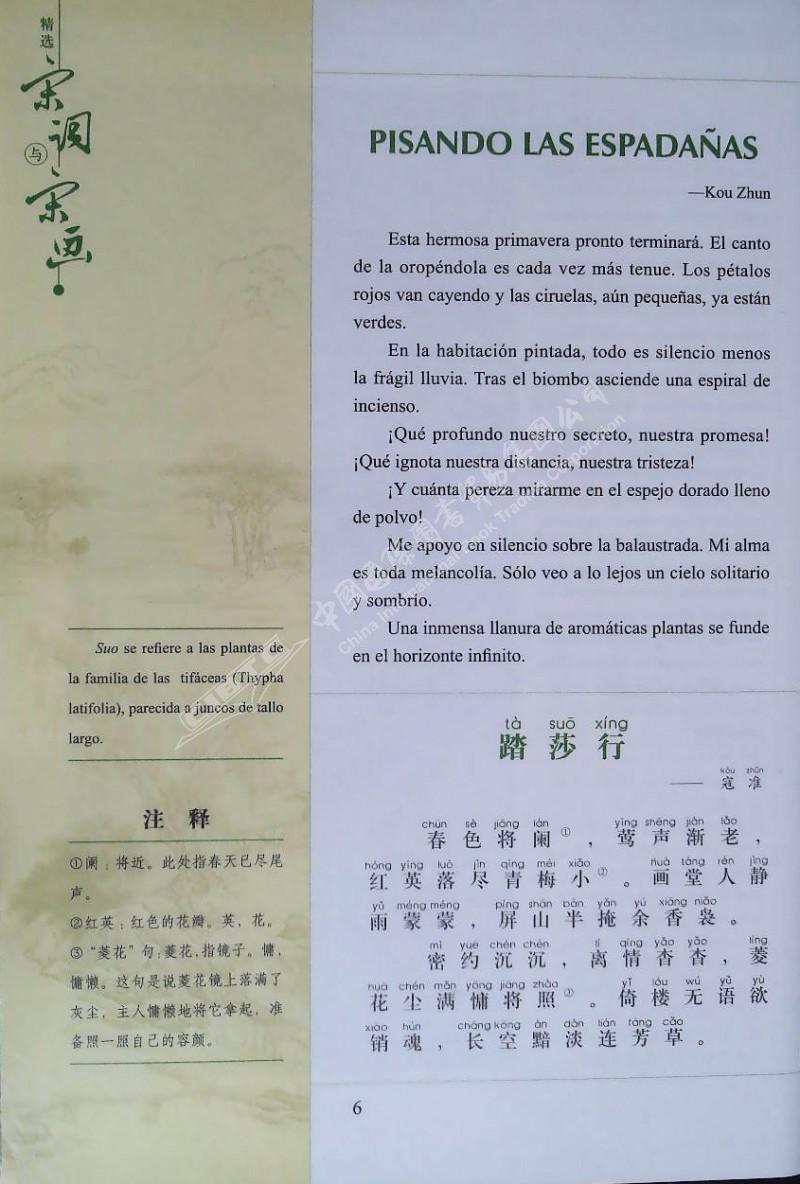 精选
宋词
与
宋画
PISANDO LAS ESPADAÑAS
—Kou Zhun
Esta hermosa primavera pronto terminará. El canto
de la oropéndola es cada vez más tenue. Los pétalos
rojos van cayendo y las ciruelas, aún pequeñas, ya están
verdes.
En la habitación pintada, todo es silencio menos
la frágil lluvia. Tras el biombo asciende una espiral de
incienso.
¡Qué profundo nuestro secreto, nuestra promesa!
¡Qué ignota nuestra distancia, nuestra tristeza!
¡Y cuánta pereza mirarme en el espejo dorado lleno
de polvo!
Me apoyo en silencio sobre la balaustrada. Mi alma
es toda melancolía. Sólo veo a lo lejos un cielo solitario
y sombrío.
Una inmensa llanura de aromáticas plantas se funde
en el horizonte infinito.
Suo se refiere a las plantas de
la familia de las tifáceas (Thypha
latifolia), parecida a juncos de tallo
largo.
注释
①阑：将近。此处指春天已尽尾
声。
②红英：红色的花瓣。英，花。
③“菱花”句：菱花，指镜子。慵，
慵懒。这句是说菱花镜上落满了
灰尘，主人慵懒地将它拿起，准
备照一照自己的容颜。
tà suō xíng
踏莎行
kòu zhǔn
—— 寇准
chūn sè jiāng lán yīng shēng jiàn lǎo
春色将阑①，莺声渐老，
hóng yīng luò jìn qīng méi xiǎo huà táng rén jìng
红英落尽青梅小②。画堂人静
yǔ méng méng píng shān bàn yǎn yú xiāng niǎo
雨蒙蒙，屏山半掩余香袅。
mì yuē chén chén lí qíng yǎo yǎo líng
密约沉沉，离情杳杳，菱
huā chén mǎn yōng jiāng zhào yǐ lóu wú yǔ yù
花尘满慵将照③。倚楼无语欲
xiāo hún cháng kōng àn dàn lián fāng cǎo
销魂，长空黯淡连芳草。
6
中国国际图书贸易集团公司
China International Book Trading Corporation
CIBTC